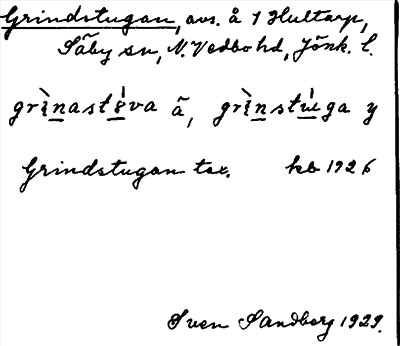 Grindstugan, avs. å 1 Hultarp,
Säby sn, N. Vedbo hd, Jönk. l.
grìnastɛ́va ä, grìnstúga y
Grindstugan tax. kb 1926
Sven Sandberg 1929.